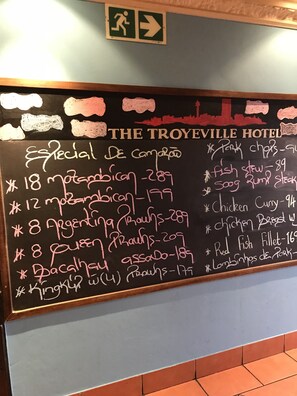 THE TROYEVILLE HOTEL
Especial De Camarão
* 18 Mozambican - 289
* 12 Mozambican - 199
* 8 Argentina Prawns - 289
* 8 Queen Prawns - 209
* Bacalhau assado - 189
* Kingklip w(4) Prawns - 179
* Pork chops -
* Fish stew - 89
* 500g Rump Steak
* Chicken Curry - 94
* Chicken Breast w
* Red Fish Fillet - 169
* Lombinhos de Pork